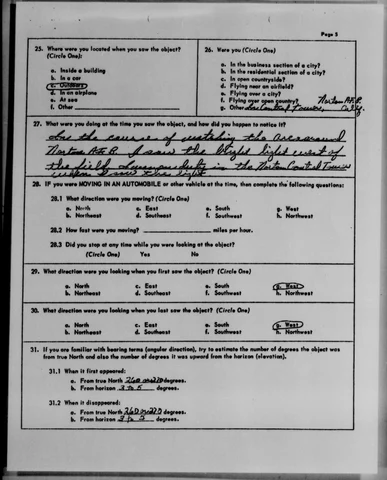 Page 5
25. Where were you located when you saw the object? (Circle One):
a. Inside a building
b. In a car
c. Outdoors
d. In an airplane
e. At sea
f. Other
26. Were you (Circle One)
a. In the business section of a city?
b. In the residential section of a city?
c. In open countryside?
d. Flying near an airfield?
e. Flying over a city?
f. Flying over open country?
g. Other In Control Tower, Norton A.F.B. Calif.
27. What were you doing at the time you saw the object, and how did you happen to notice it?
In the course of watching the area around
Norton A.F.B. I saw the bright light west of
the field. I was on duty in the Norton Control Tower
when I saw the light
28. IF you were MOVING IN AN AUTOMOBILE or other vehicle at the time, then complete the following questions:
28.1 What direction were you moving? (Circle One)
a. North c. East e. South g. West
b. Northeast d. Southeast f. Southwest h. Northwest
28.2 How fast were you moving? miles per hour.
28.3 Did you stop at any time while you were looking at the object?
(Circle One) Yes No
29. What direction were you looking when you first saw the object? (Circle One)
a. North c. East e. South g. West
b. Northeast d. Southeast f. Southwest h. Northwest
30. What direction were you looking when you last saw the object? (Circle One)
a. North c. East e. South g. West
b. Northeast d. Southeast f. Southwest h. Northwest
31. If you are familiar with bearing terms (angular direction), try to estimate the number of degrees the object was
from true North and also the number of degrees it was upward from the horizon (elevation).
31.1 When it first appeared:
a. From true North 260 or 270 degrees.
b. From horizon 3 to 5 degrees.
31.2 When it disappeared:
a. From true North 260 or 270 degrees.
b. From horizon 3 to 5 degrees.